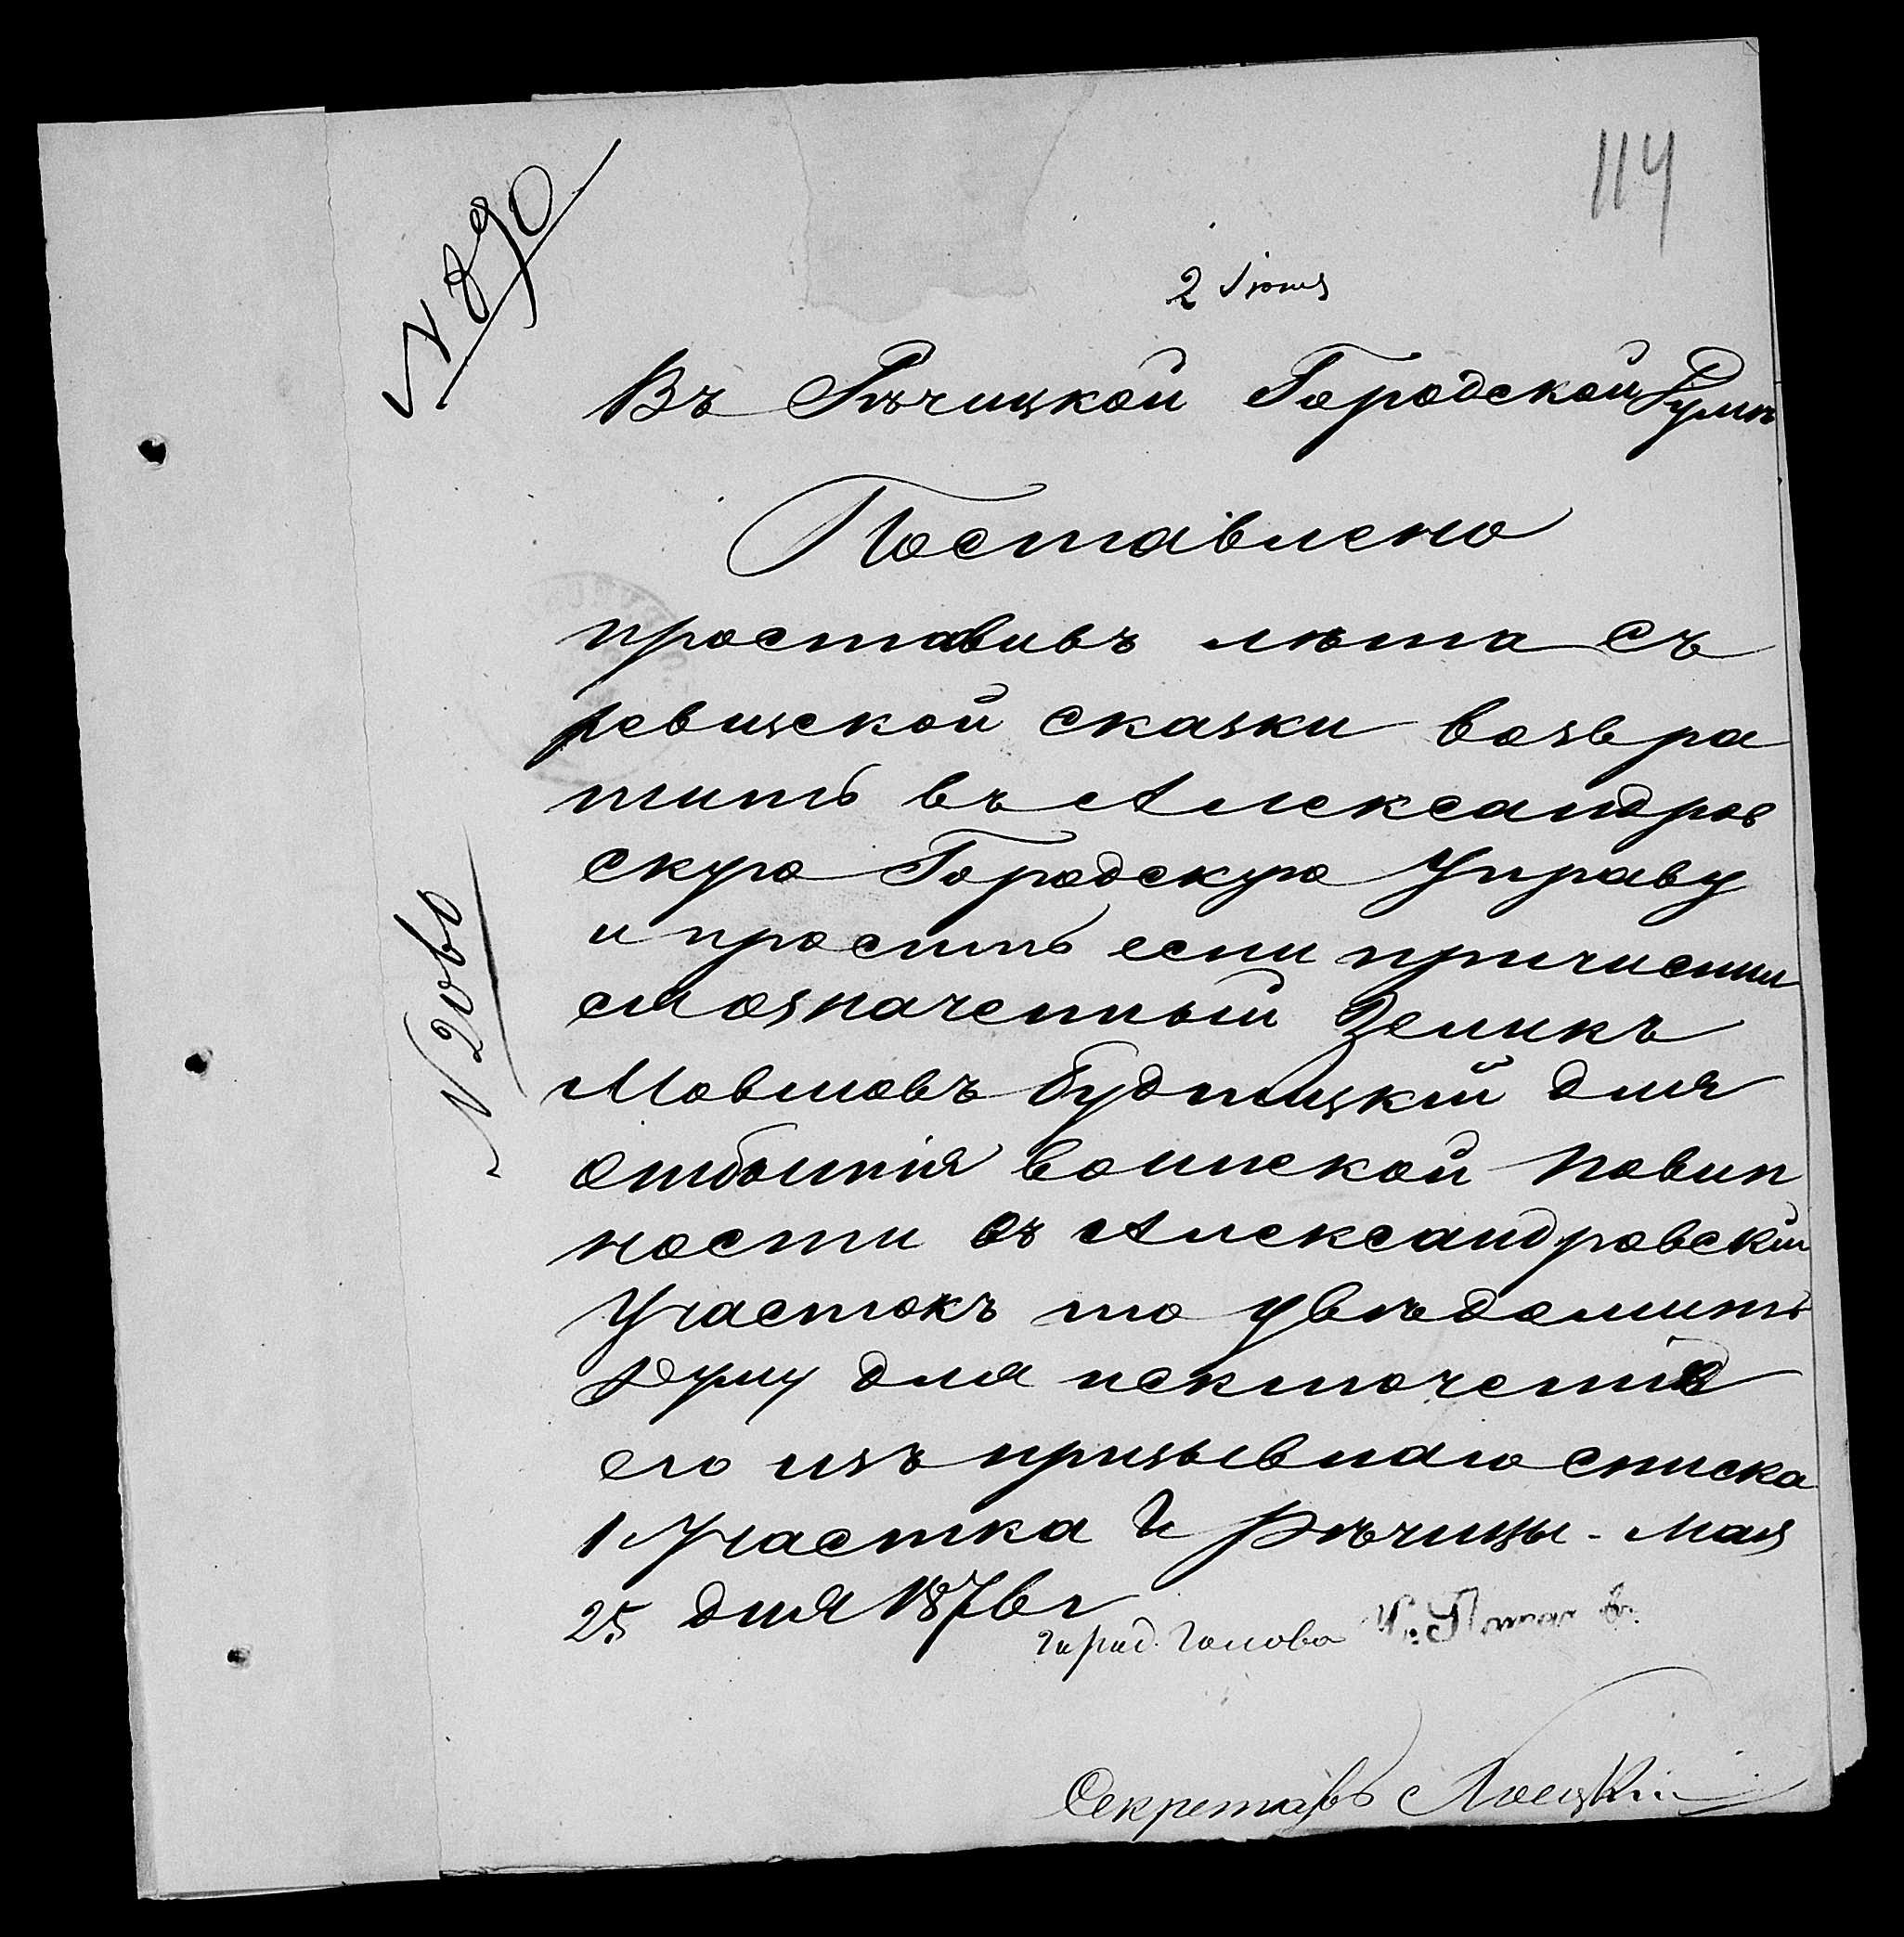 114
N 890
2 Июня
Въ Рѣчицкой Городской Думѣ
Поставлено
проставивъ лѣта съ
ревизской сказки возвра
тить въ Александров
скую Городскую Управу
и просить если причисли
ся означенный Зеликъ
Мовшовъ Будницкій для
отбытія воинской повин
ности въ Александровскій
Участокъ то увѣдомить
Думу для исключенія
его изъ призывнаго списка
1 Участка Г Рѣчицы - мая
25 дня 1876 г
N 2060
Город. Голова
Секретарь